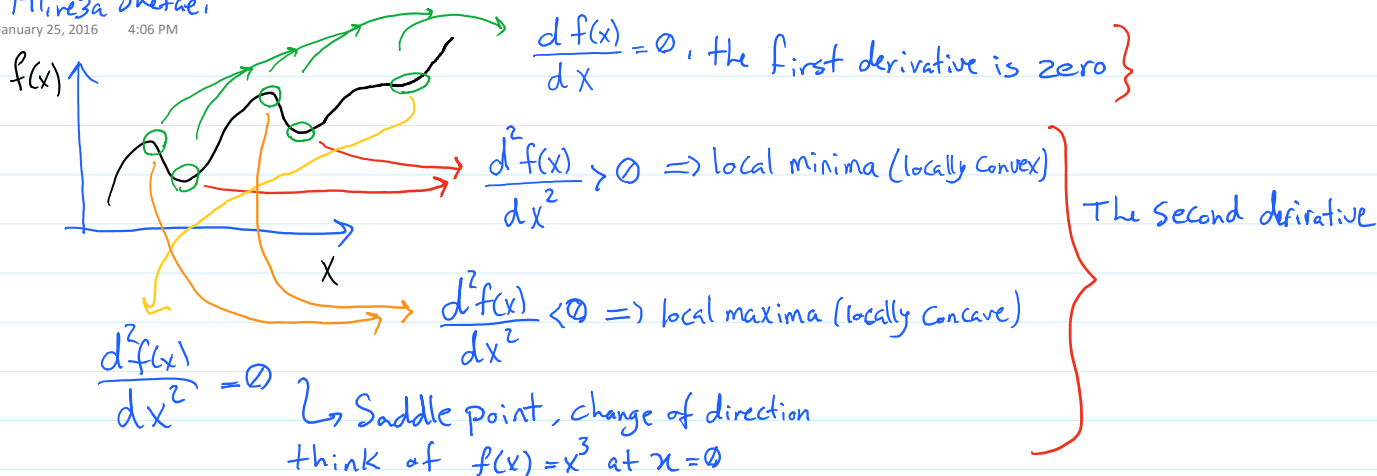 January 25, 2016 4:06 PM
f(x)
d f(x) / dx = 0, the first derivative is zero
d²f(x) / dx² > 0 => local minima (locally convex)
The second derivative
x
d²f(x) / dx² < 0 => local maxima (locally concave)
d²f(x) / dx² = 0
Saddle point, change of direction
think of f(x) = x³ at x = 0